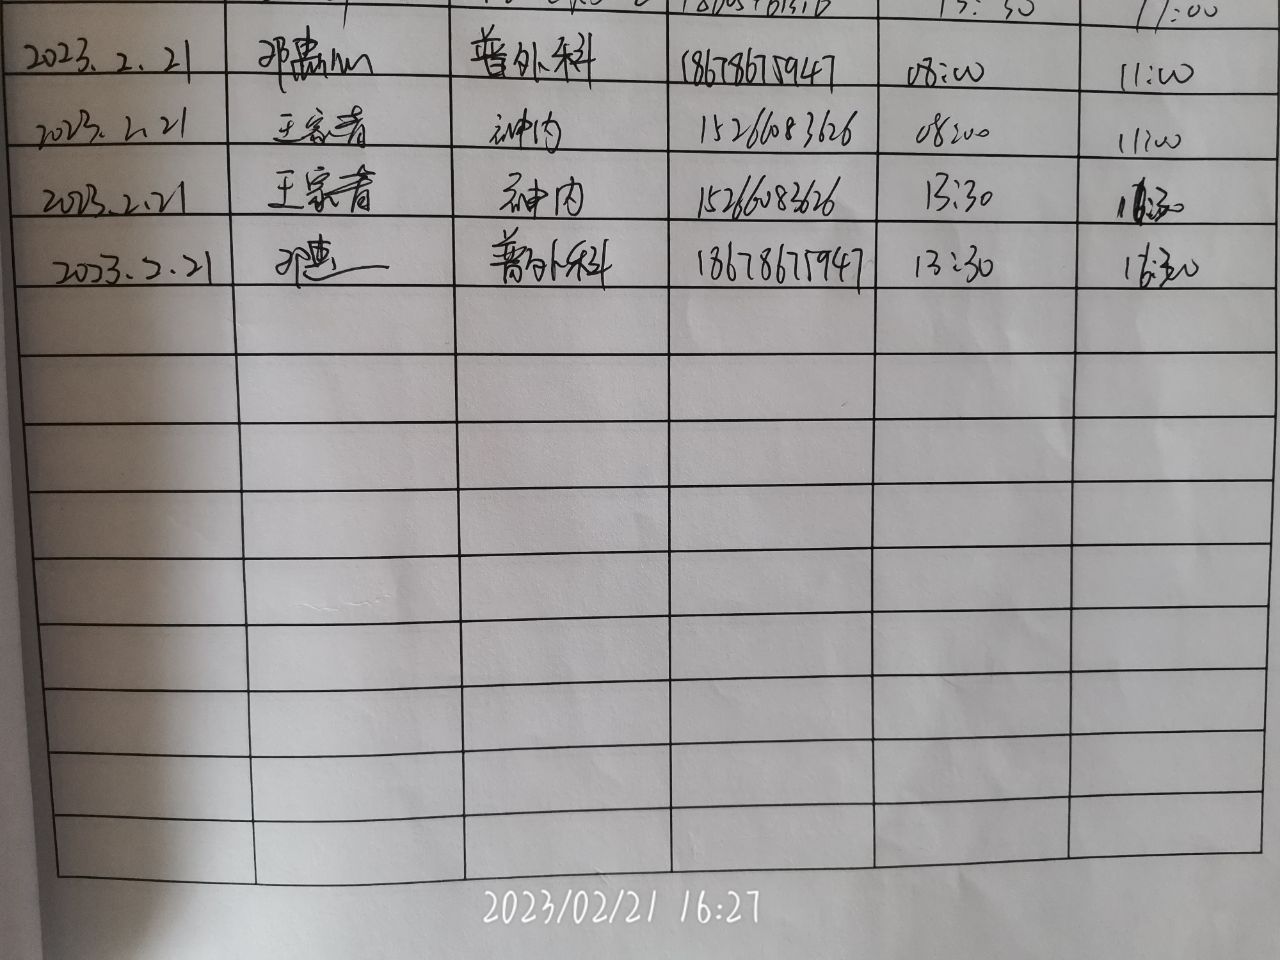 13:30 17:00
2023.2.21 普外科 18678675947 08:00 11:00
2023.2.21 王宗者 神内 15266083626 08:00 11:00
2023.2.21 王宗者 神内 15266083626 13:30 16:30
2023.2.21 普外科 18678675947 13:30 16:30
2023/02/21 16:27